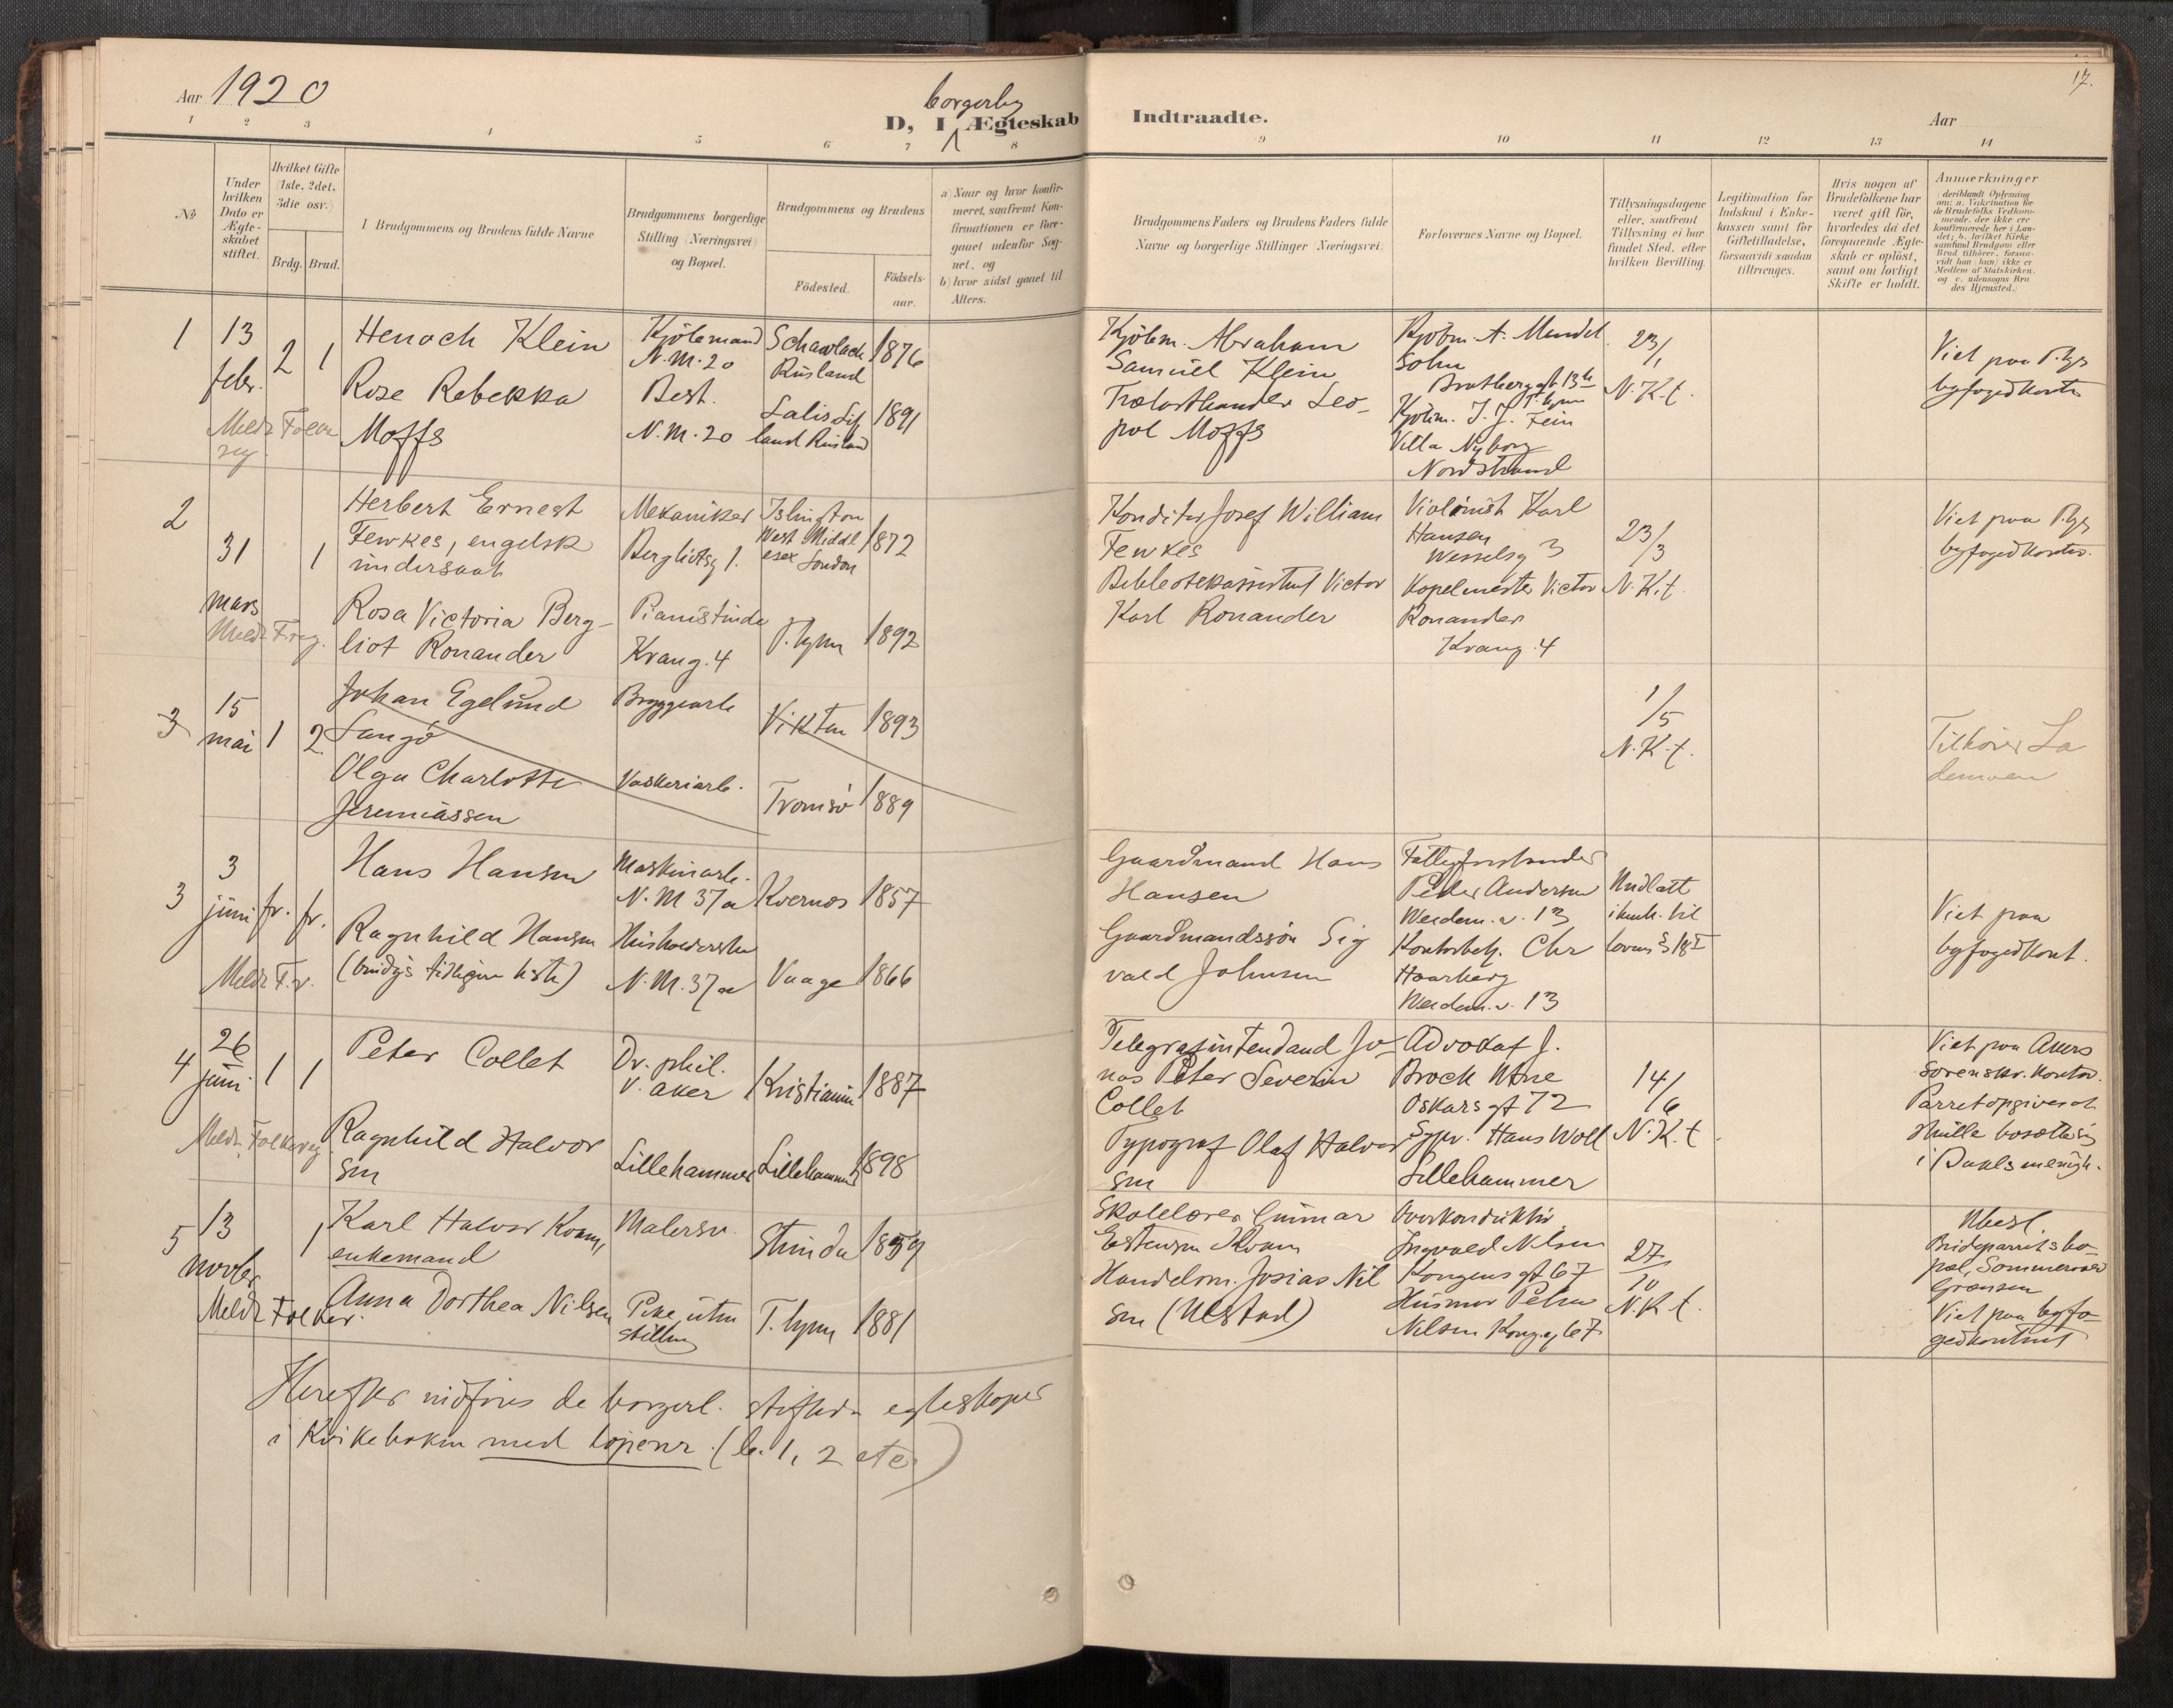 Aar 1920
borgerlig
D, I Ægteskab Indtraadte.
Aar
17.
1 2 3 4 5 6 7 8 9 10 11 12 13 14
No
Under hvilken Dato er Ægteskabet stiftet.
Hvilket Gifte (1ste, 2det, 3die osv.)
Brdg. Brud.
1 Brudgommens og Brudens fulde Navne
Brudgommens borgerlige Stilling (Næringsvei) og Bopæl.
Brudgommens og Brudens
Födested.
Födselsaar.
a) Naar og hvor konfirmeret, saafremt Konfirmationen er foregaaet udenfor Sognet, og
b) hvor sidst gaaet til Alters.
Brudgommens Faders og Brudens Faders fulde Navne og borgerlige Stillinger Næringsvei.
Forlovernes Navne og Bopæl.
Tillysningsdagene eller, saafremt Tillysning ei har fundet Sted, efter hvilken Bevilling.
Legitimation for Indskud i Enkekassen samt for Giftetilladelse, forsaavidt saadan tiltrænges.
Hvis nogen af Brudefolkene har været gift för, hvorledes da det foregaaende Ægteskab er oplöst, samt om lovligt Skifte er holdt.
Anmærkninger
(deriblandt Oplysning om: a. Vakcination for de Brudefolks Vedkommende, der ikke ere konfirmerede her i Landet; b. hvilket Kirkesamfund Brudgom eller Brud tilhörer, forsaavidt han (hun) ikke er Medlem af Statskirken, og c. udensogns Brudes Hjemsted.)
1
13
febr.
2 1
Henoch Klein
Kjöbmand
N.M. 20
Schawlach
Rusland
1876
Rose Rebekka
Moffs
Best.
N.M. 20
Salis Lif
land Rusland
1891
Meldt Folkereg
Kjöbm. Abraham
Samuel Klein
Trælasthandler Leo-
pol Moffs
Kjøbm. A. Mendel
sohn
Kjöbm. J. J. Fein
Villa Nyborg
Nordstrand
23/1
N.K.t.
Viet paa T.hjs
byfogedkontor
2
31
mars
1
Herbert Ernest
Fewkes, engelsk
undersaat
Mekaniker
Bergliotsg 1.
Islington
West Middl
esex London
1872
Rosa Victoria Berg-
liot Ronander
Pianistinde
Krang. 4
T.hjm
1892
Meldt F.reg.
Konditor Josef William
Fewkes
Bibliotekassistent Victor
Karl Ronander
Violinist Karl
Hansen
Wesselsg 3
Kapelmester Victor
Ronander
Krang. 4
23/3
N.K.t.
Viet paa T.hjs
byfogedkontor.
3
15
mai
1 2.
Johan Egelund
Langö
Bryggearb
Vikten
1893
Olga Charlotte
Jeremiassen
Vaskeriarb.
Tromsö
1889
1/5
N.K.t.
Tilhører La
demoen
3
3
juni
fr. fr.
Hans Hansen
Maskinarb.
N.M 37a
Kvernes
1857
Ragnhild Hansen
(brudgs tidligere hstr)
Husholderske
N.M. 37a
Vaage
1866
Meldt F.r.
Gaardmand Hans
Hansen
Gaardmandssön Sig
vald Johnsen
Fattigforstander
Peder Andersen
Weidem.v. 13
Kontorbetj. Chr
Haarberg
Weidem.v. 13
Undlatt
i henh. til
lovens § 18 I
Viet paa
byfogedkont.
4
26
juni
1 1
Peter Collet
Dr. phil.
V. Aker
Kristiania
1887
Ragnhild Halvor
sen
Lillehammer
Lillehammer
1898
Meldt Folkereg
Telegrafintendand Jo-
nas Peter Severin
Collet
Typograf Olaf Halvor
sen
Advokat J.
Brock Utne
Oskarsgt 72
Sygv. Hans Woll
Lillehammer
14/6
N.K.t.
Viet paa Akers
Sorenskr. kontor.
Parret opgives at
skulle bosætte sig
i Bakls menigh.
5
13
novbr
1
Karl Halvor Kvam,
enkemand
Malersv.
Strinda
1859
Anna Dorthea Nilsen
Pike uten
stilling
T.hjm
1881
Meldt Folker.
Skolelærer Gunnar
Estensen Kvam
Handelsm. Josias Nil
sen (Ulstad)
Overkonduktör
Ingvald Nilsen
Kongens gt 67
Husmor Petra
Nilsen Kong.g 67
27/10
N.K.t.
Ubesl.
Brudeparrets bo-
pæl, Sommerveir
Grænsen
Viet paa byfo-
gedkontoret
Herefter indföres de borgerl. stiftede egteskaper
i Kirkeboken med löpenr. (b. 1, 2 etc)